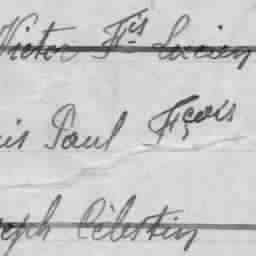 Victor Fis Lucien
is Paul Fçois
eph Célestin